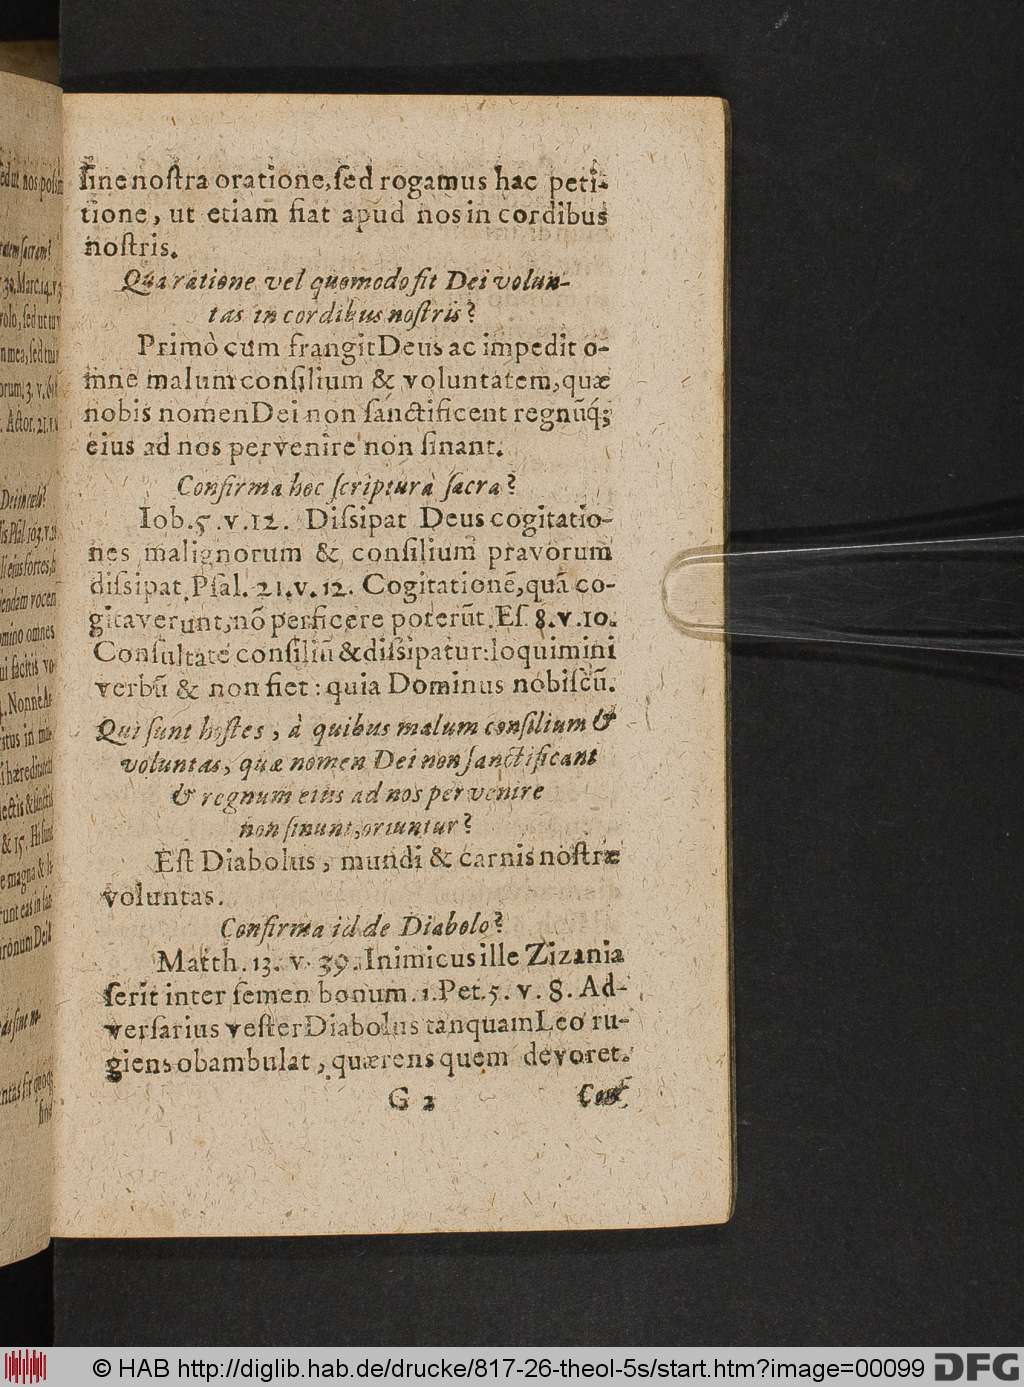 ſine noſtra oratione, ſed rogamus hac peti-
tione, ut etiam fiat apud nos in cordibus
noſtris.
Qua ratione vel quomodo fit Dei volun-
tas in cordibus noſtris?
Primò cùm frangit Deus ac impedit o-
mne malum conſilium & voluntatem, quæ
nobis nomen Dei non ſanctificent regnūq́;
eius ad nos pervenire non ſinant.
Confirma hoc ſcripturâ ſacra?
Iob. 5. v. 12. Diſsipat Deus cogitatio-
nes malignorum & conſilium pravorum
diſsipat. Pſal. 21. v. 12. Cogitationē, quā co-
gitaverunt, nō perficere poterūt. Eſ. 8. v. 10.
Conſultate conſiliū & diſsipatur: loquimini
verbū & non fiet: quia Dominus nobiſcū.
Qui ſunt hoſtes, à quibus malum conſilium &
voluntas, quæ nomen Dei non ſanctificant
& regnum eius ad nos pervenire
non ſinunt, oriuntur?
Eſt Diabolus, mundi & carnis noſtræ
voluntas.
Confirma id de Diabolo?
Matth. 13. v. 39. Inimicus ille Zizania
ſerit inter ſemen bonum. 1. Pet. 5. v. 8. Ad-
verſarius veſter Diabolus tanquam Leo ru-
giens obambulat, quærens quem devoret.
G 2
© HAB http://diglib.hab.de/drucke/817-26-theol-5s/start.htm?image=00099
DFG